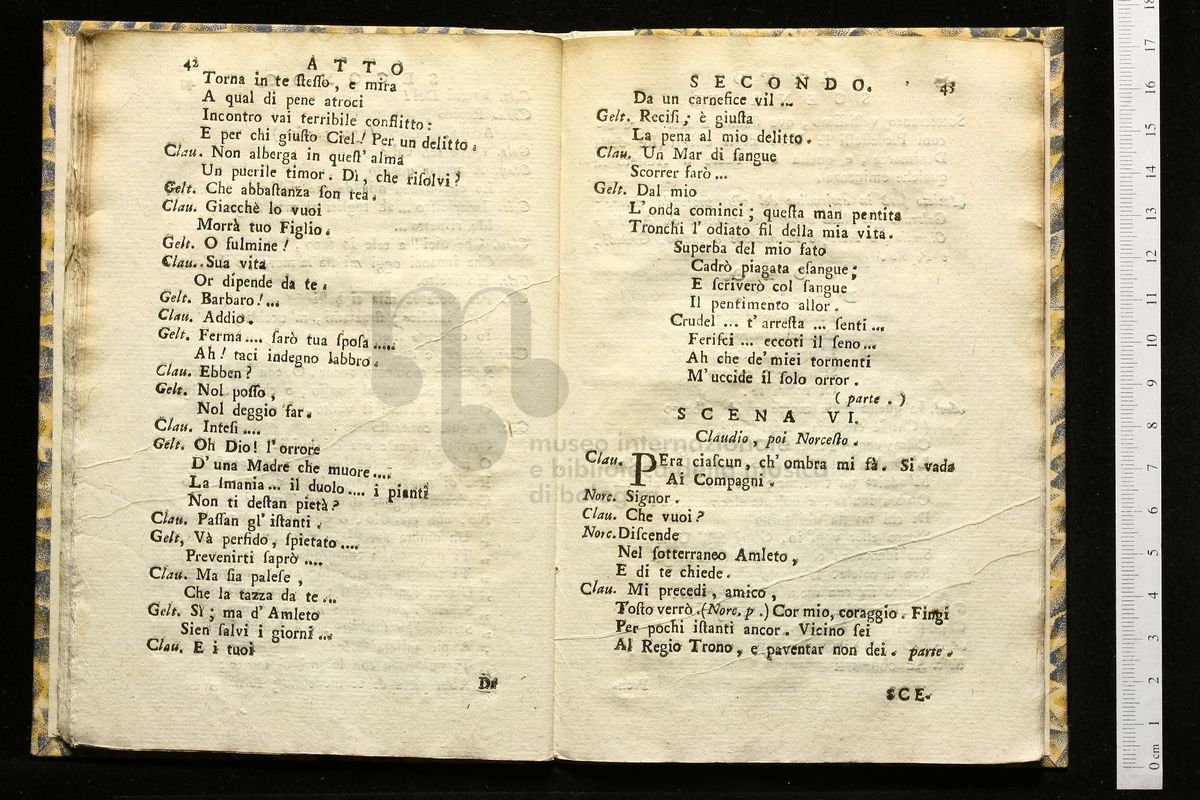 42 ATTO
Torna in te steſſo, e mira
A qual di pene atroci
Incontro vai terribile conflitto:
E per chi giuſto Ciel! Per un delitto.
Clau. Non alberga in queſt' alma
Un puerile timor. Dì, che riſolvi?
Gelt. Che abbaſtanza ſon rea.
Clau. Giacchè lo vuoi
Morrà tuo Figlio.
Gelt. O fulmine!
Clau. Sua vita
Or dipende da te.
Gelt. Barbaro!...
Clau. Addio.
Gelt. Ferma.... ſarò tua ſpoſa.....
Ah! taci indegno labbro.
Clau. Ebben?
Gelt. Nol poſſo,
Nol deggio far.
Clau. Inteſi....
Gelt. Oh Dio! l'orrore
D'una Madre che muore....
La ſmania... il duolo.... i pianti
Non ti deſtan pietà?
Clau. Paſſan gl' iſtanti.
Gelt, Và perfido, ſpietato....
Prevenirti ſaprò....
Clau. Ma ſia paleſe,
Che la tazza da te...
Gelt. Sì; ma d' Amleto
Sien ſalvi i giorni...
Clau. E i tuoi
Da
SECONDO. 43
Da un carnefice vil...
Gelt. Reciſi; è giuſta
La pena al mio delitto.
Clau. Un Mar di ſangue
Scorrer farò...
Gelt. Dal mio
L'onda cominci; queſta man pentita
Tronchi l'odiato fil della mia vita.
Superba del mio fato
Cadrò piagata eſangue;
E ſcriverò col ſangue
Il pentimento allor.
Crudel... t'arreſta... ſenti...
Feriſci... eccoti il ſeno...
Ah che de' miei tormenti
M'uccide il ſolo orror.
(parte.)
SCENA VI.
Claudio, poi Norceſto.
Clau. PEra ciaſcun, ch'ombra mi fà. Si vada
Ai Compagni.
Norc. Signor.
Clau. Che vuoi?
Norc. Diſcende
Nel ſotterraneo Amleto,
E di te chiede.
Clau. Mi precedi, amico,
Toſto verrò. (Norc. p.) Cor mio, coraggio. Fingi
Per pochi iſtanti ancor. Vicino ſei
Al Regio Trono, e paventar non dei. parte.
SCE-
museo internazionale
e biblioteca della musica
di bologna
0 cm 1 2 3 4 5 6 7 8 9 10 11 12 13 14 15 16 17 18